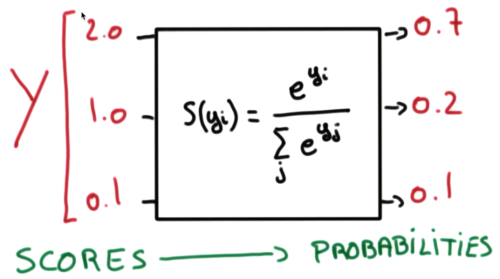 Y
2.0
1.0
0.1
S(yᵢ) = e^{yᵢ} / Σⱼ e^{yⱼ}
0.7
0.2
0.1
SCORES → PROBABILITIES